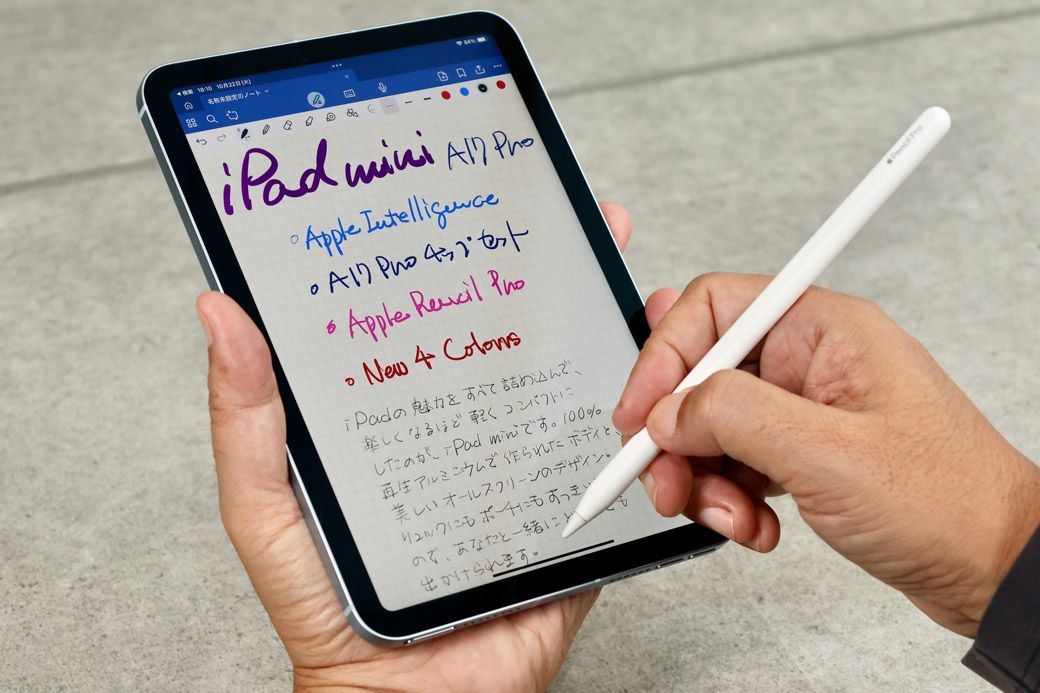 検索 18:10 10月22日(火) 84%
名称未設定のノート
iPad mini A17 Pro
Apple Intelligence
A17 Pro チップセット
Apple Pencil Pro
New 4 Colors
iPadの魅力をすべて詰め込んで、
楽しくなるほど軽くコンパクトに
したのが、iPad miniです。100%
再生アルミニウムで作られたボディと
美しいオールスクリーンのデザイン。
リュックにもポーチにもすっぽ
ので、あなたと一緒にど
出かけられます。
Pencil Pro